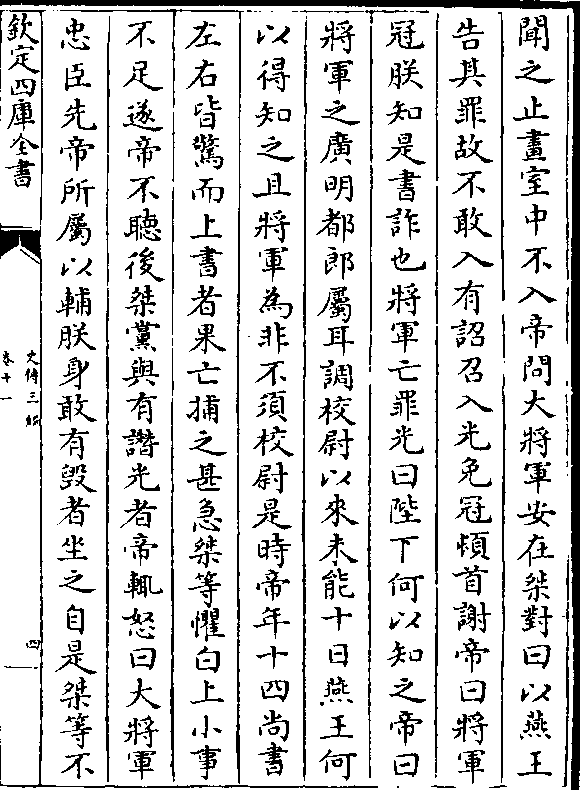 聞之止畫室中不入帝問大將軍安在桀對曰以燕王
告其罪故不敢入有詔召入光免冠頓首謝帝曰將軍
冠朕知是書詐也將軍亡罪光曰陛下何以知之帝曰
將軍之廣明都郎屬耳調校尉以來未能十日燕王何
以得知之且將軍為非不須校尉是時帝年十四尚書
左右皆驚而上書者果亡捕之甚急桀等懼白上小事
不足遂帝不聽後桀黨與有譖光者帝輒怒曰大將軍
忠臣先帝所屬以輔朕身敢有毀者坐之自是桀等不
欽定四庫全書
史傳三編
卷十一
四